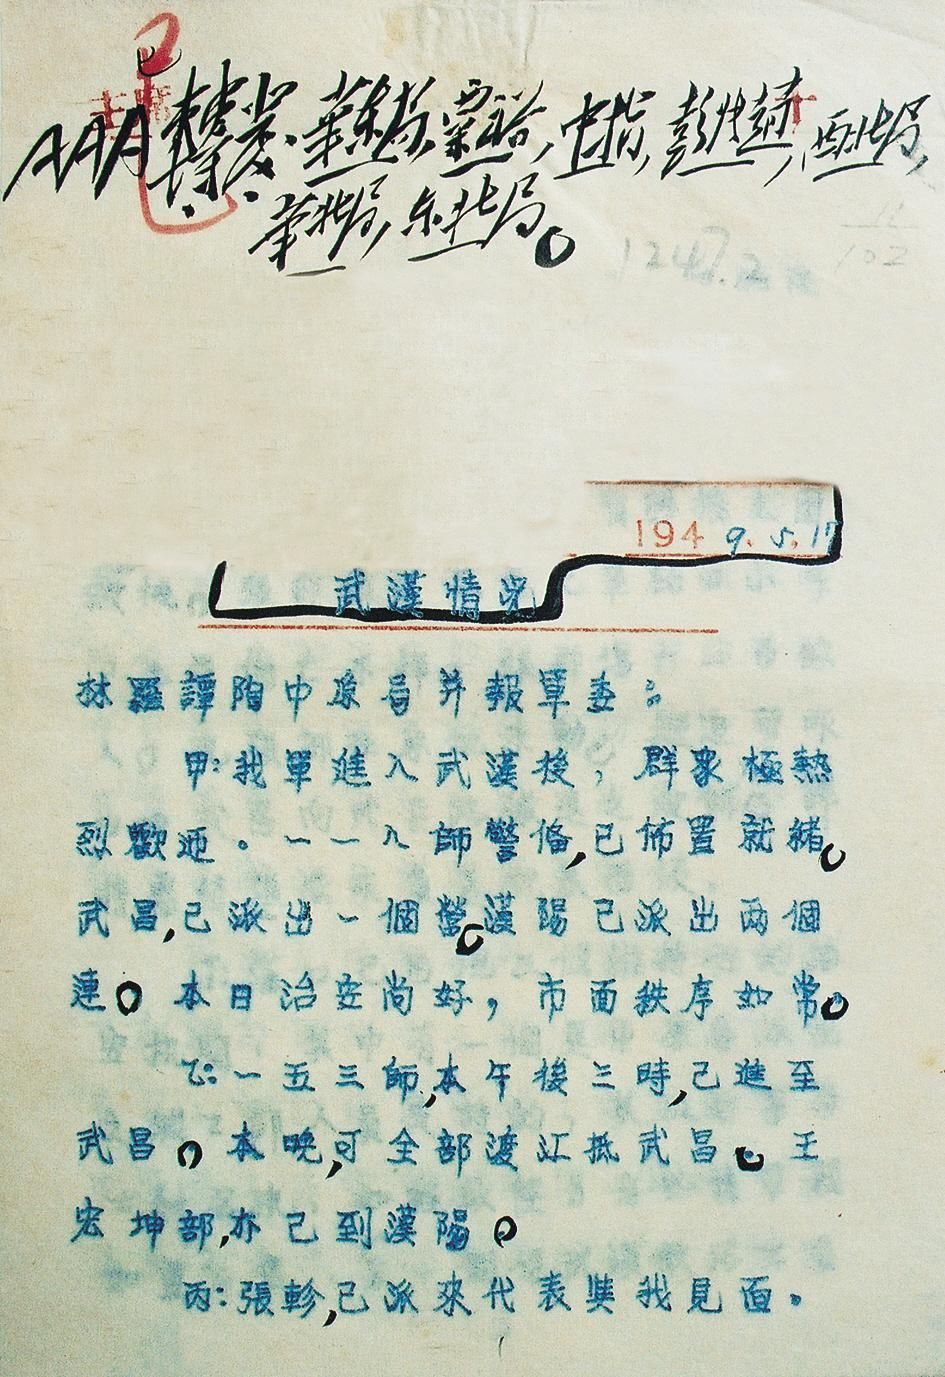 華東局、粟裕,中指,彭
華北局,东北局。
1949.5.17
武漢情况
林羅譚陶中原局并報軍委:
甲:我軍進入武漢後,群衆極熱
烈歡迎。一一八師警備,已佈置就緒。
武昌,已派出一個營。漢陽已派出兩個
連。本日治安尚好,市面秩序如常。
乙:一五三師,本午後三時,已進至
武昌。本晚,可全部渡江抵武昌。王
宏坤部,亦已到漢陽。
丙:張軫,已派來代表與我見面。